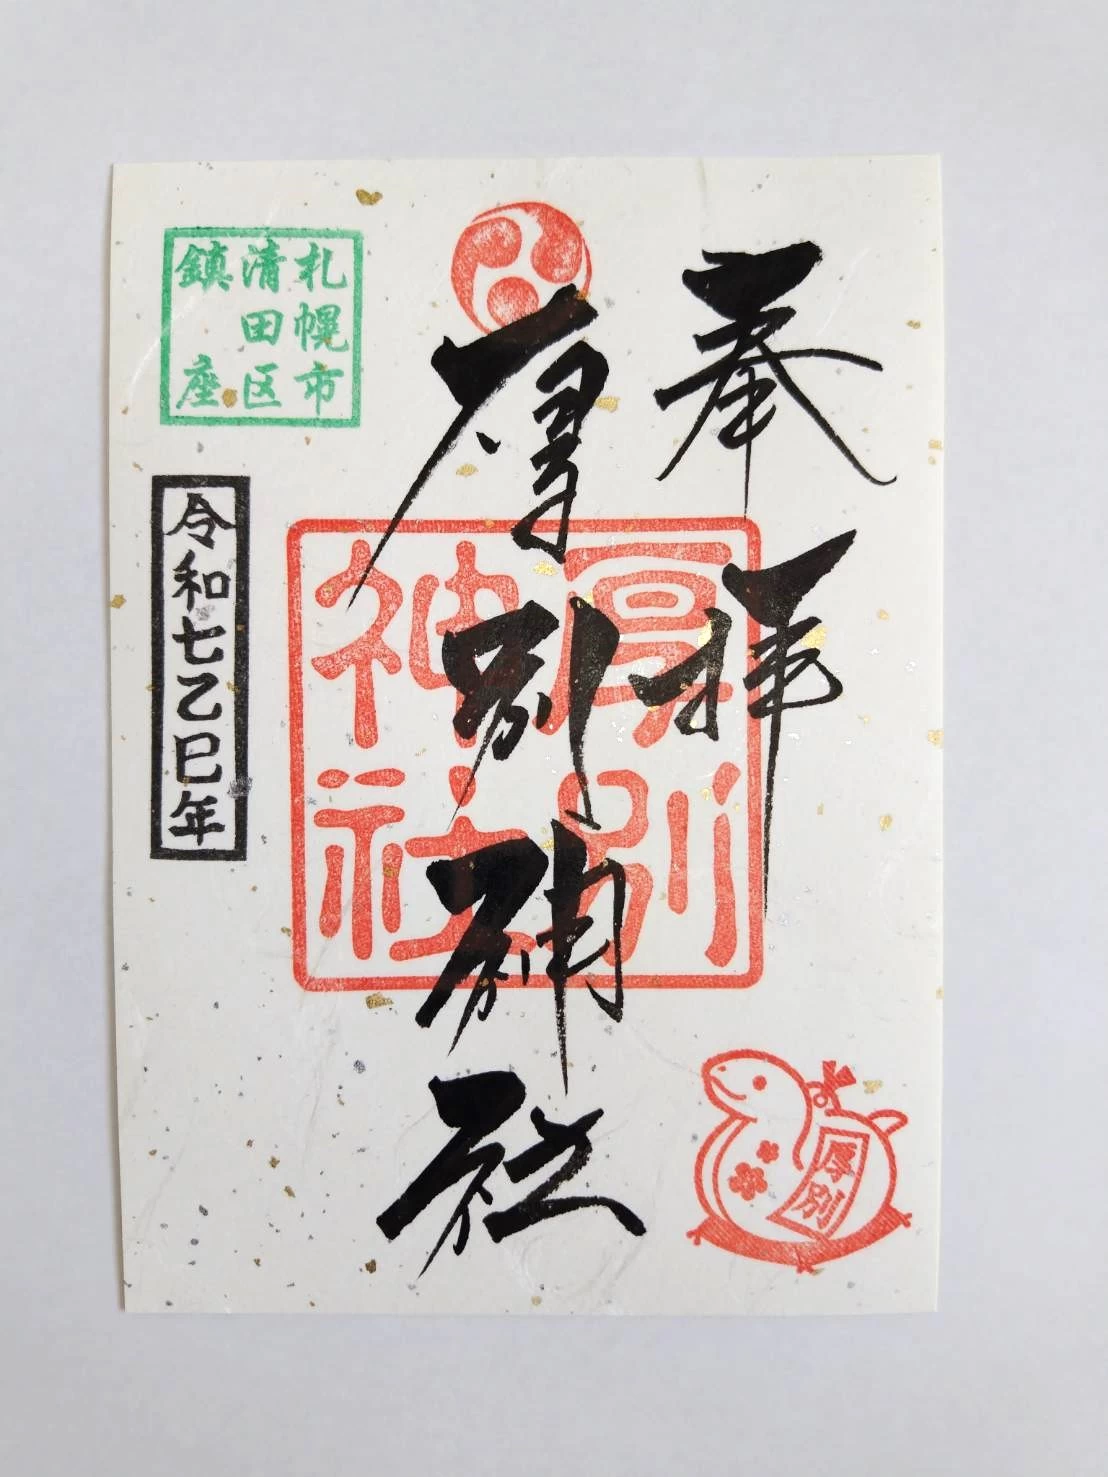 奉拝
厚別神社
厚別
神社
札幌市
清田区
鎮座
令和七乙巳年
厚別